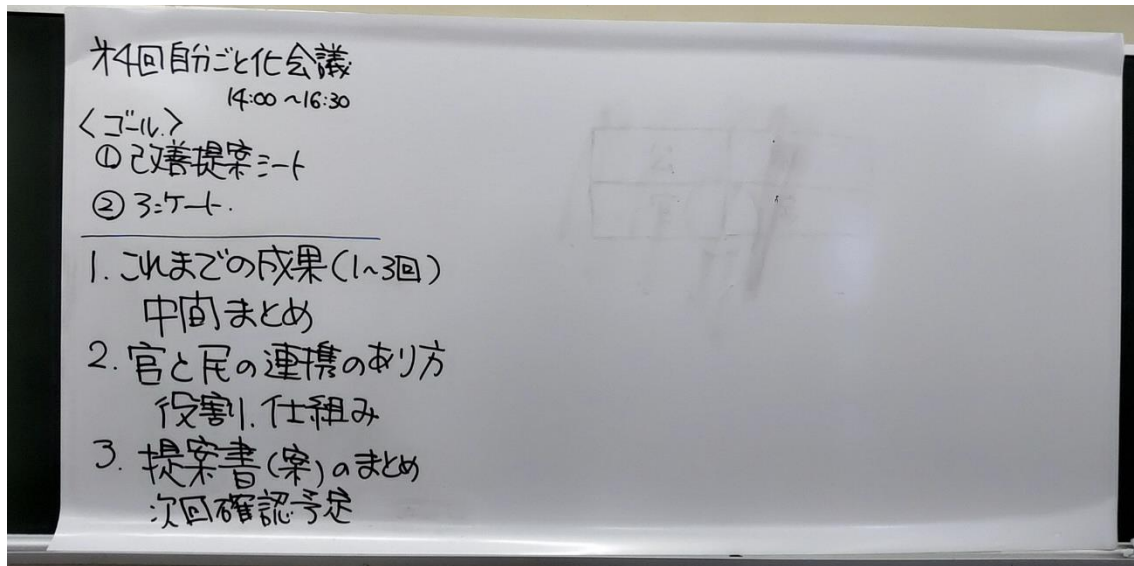 第4回自分ごと化会議
14:00~16:30
<ゴール>
① 改善提案シート
② アンケート.
1. これまでの成果(1~3回)
中間まとめ
2. 官と民の連携のあり方
役割、仕組み
3. 提案書(案)のまとめ
次回確認予定